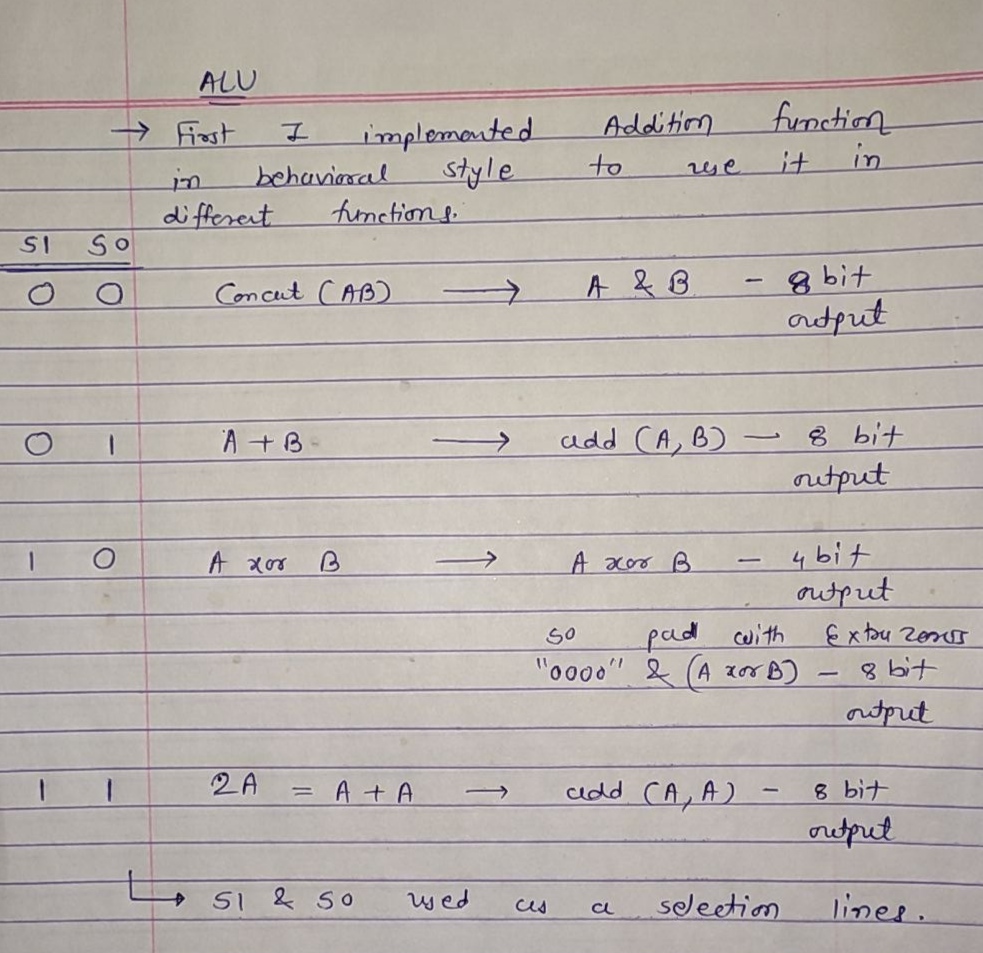 ALU
→ First I implemented Addition function
in behavioral style to use it in
different functions.
S1 S0
0 0 Concat (AB) → A & B - 8 bit
output
0 1 A + B → add (A, B) - 8 bit
output
1 0 A xor B → A xor B - 4 bit
output
so pad with Extra zeros
"0000" & (A xor B) - 8 bit
output
1 1 2A = A + A → add (A, A) - 8 bit
output
↳ S1 & S0 used as a selection lines.